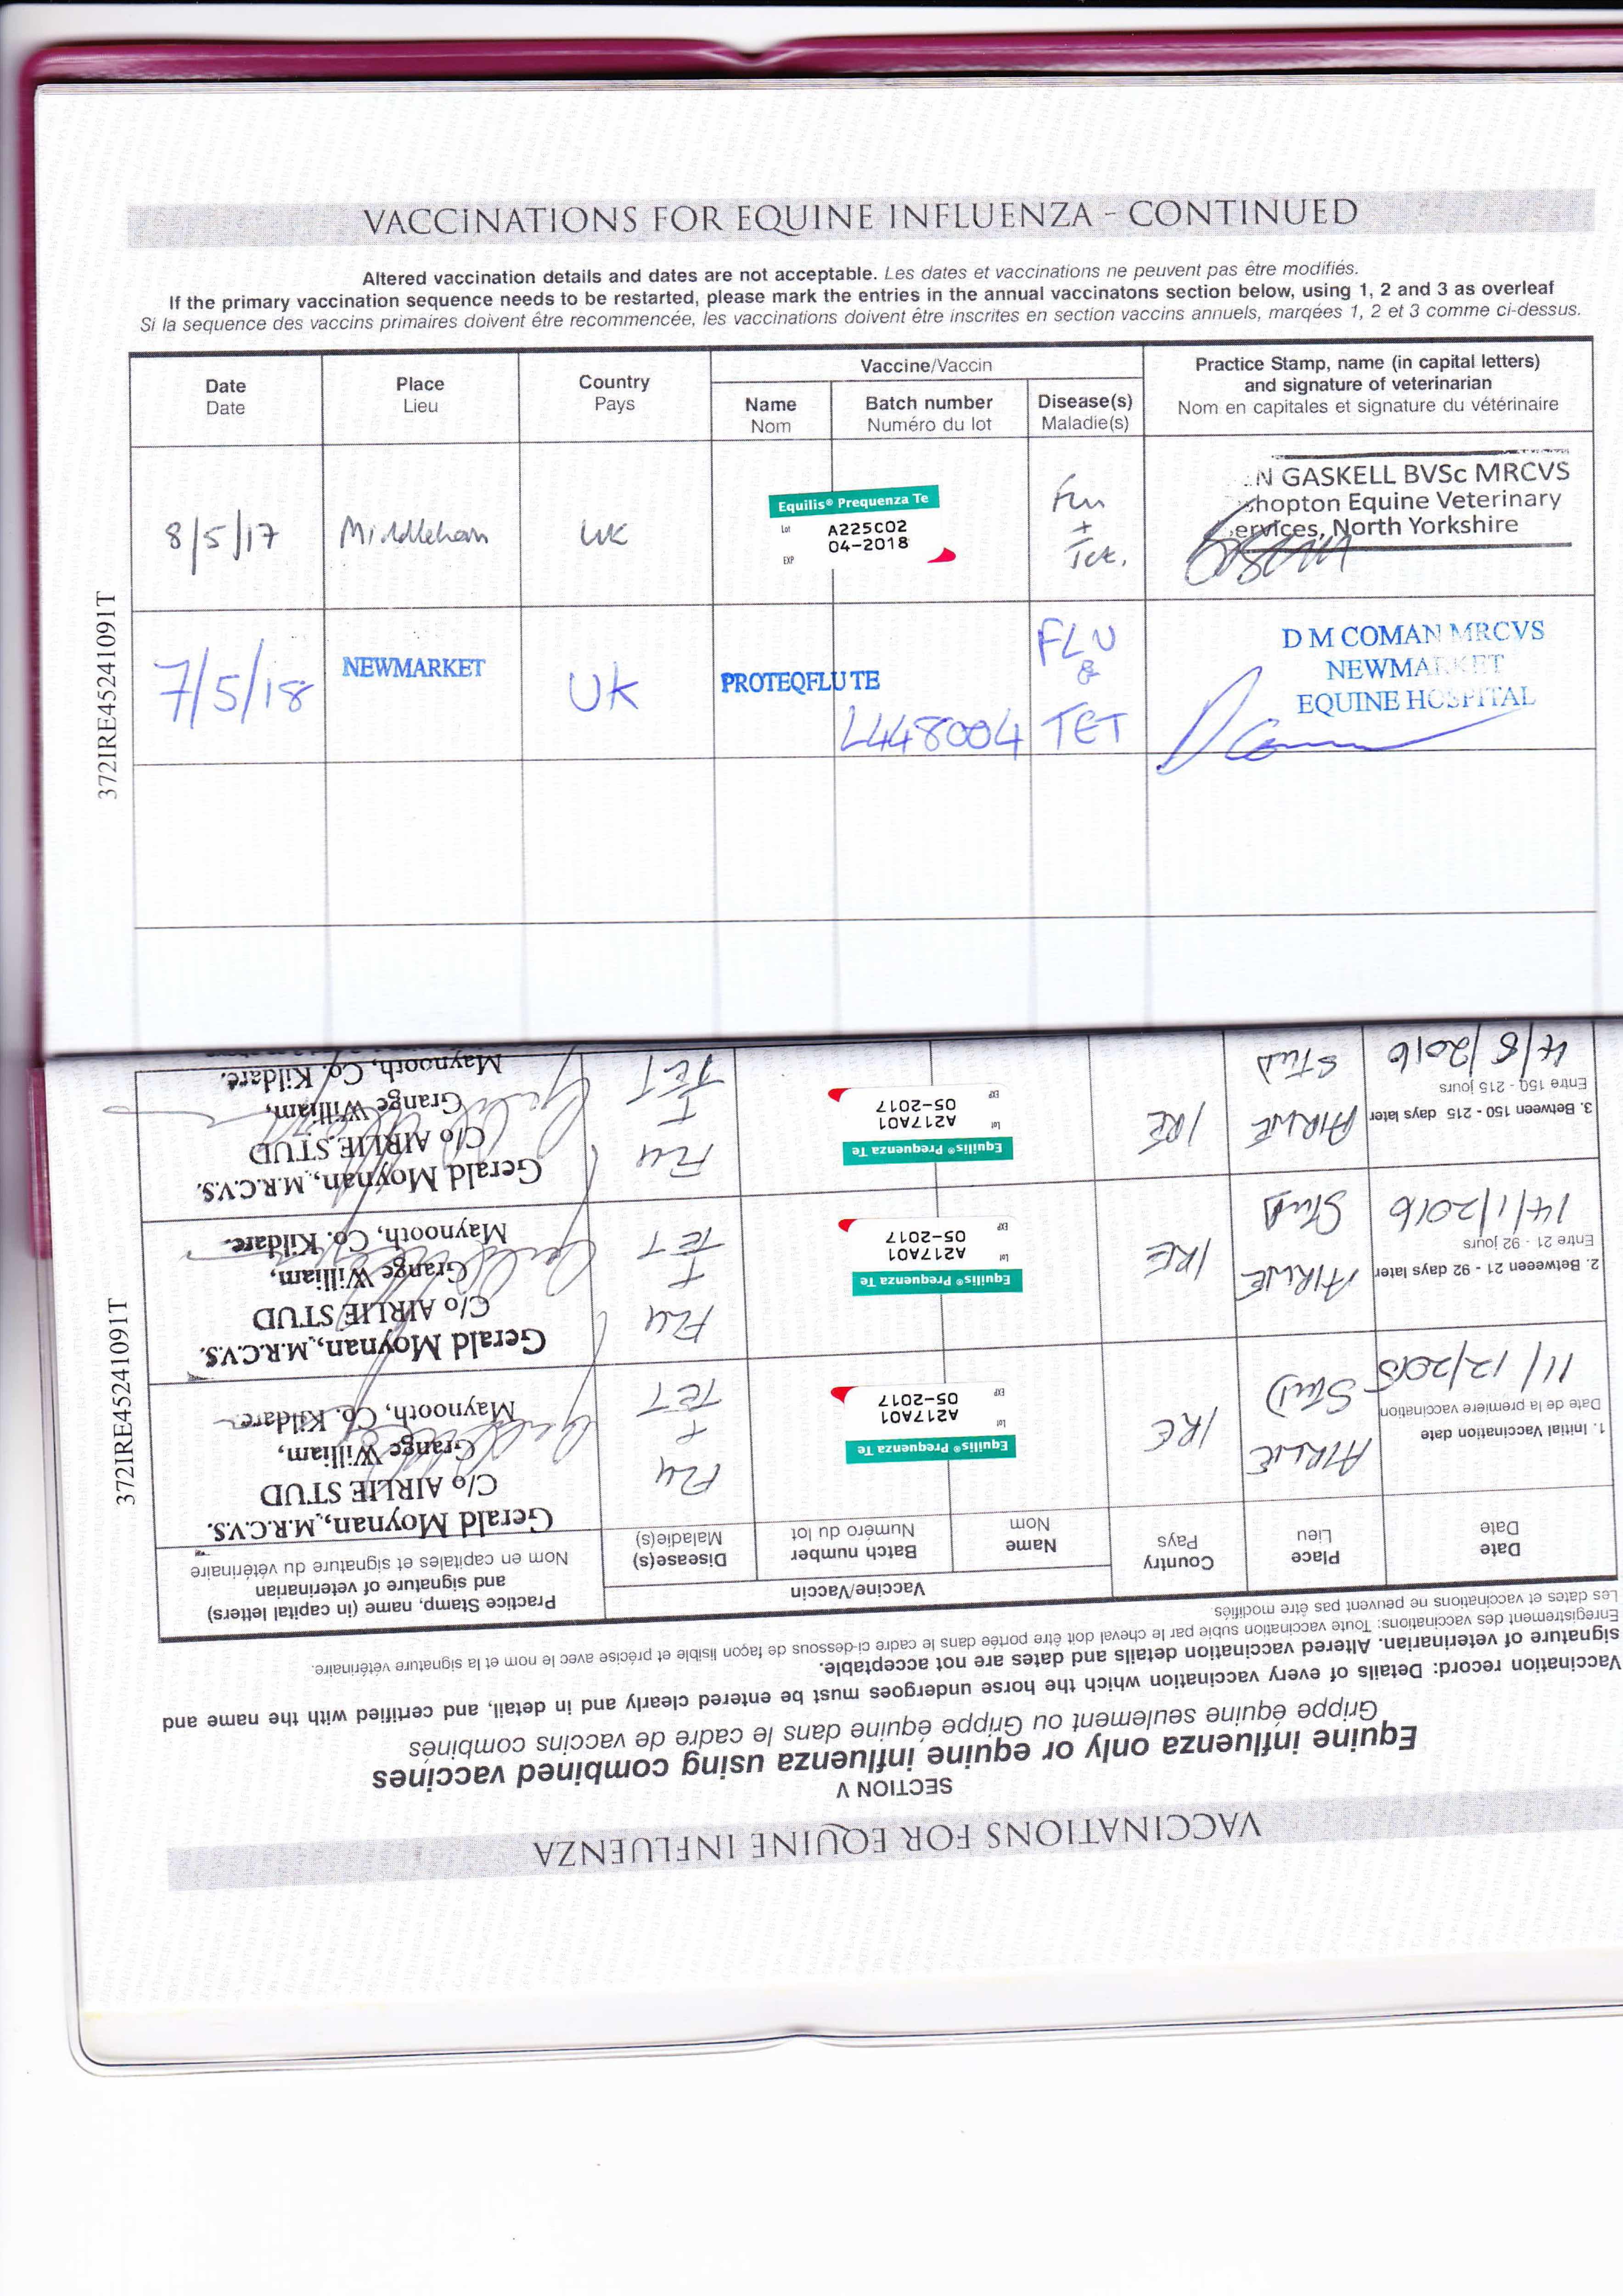 VACCINATIONS FOR EQUINE INFLUENZA - CONTINUED
Altered vaccination details and dates are not acceptable. Les dates et vaccinations ne peuvent pas être modifiés.
If the primary vaccination sequence needs to be restarted, please mark the entries in the annual vaccinatons section below, using 1, 2 and 3 as overleaf
Si la sequence des vaccins primaires doivent être recommencée, les vaccinations doivent être inscrites en section vaccins annuels, marqées 1, 2 et 3 comme ci-dessus.
Date
Date
Place
Lieu
Country
Pays
Vaccine/Vaccin
Name
Nom
Batch number
Numéro du lot
Disease(s)
Maladie(s)
Practice Stamp, name (in capital letters)
and signature of veterinarian
Nom en capitales et signature du vétérinaire
8/5/17
Middleham
UK
Equilis® Prequenza Te
Lot A225C02
EXP 04-2018
Flu
+
Tet.
N GASKELL BVSc MRCVS
hopton Equine Veterinary
ervices, North Yorkshire
7/5/18
NEWMARKET
UK
PROTEQFLU TE
L448004
FLU
&
TET
D M COMAN MRCVS
NEWMARKET
EQUINE HOSPITAL
372IRE45241091T
VACCINATIONS FOR EQUINE INFLUENZA
SECTION V
Equine influenza only or equine influenza using combined vaccines
Grippe équine seulement ou Grippe équine dans le cadre de vaccins combinés
Vaccination record: Details of every vaccination which the horse undergoes must be entered clearly and in detail, and certified with the name and
signature of veterinarian. Altered vaccination details and dates are not acceptable.
Enregistrement des vaccinations: Toute vaccination subie par le cheval doit être portée dans le cadre ci-dessous de façon lisible et précise avec le nom et la signature vétérinaire.
Les dates et vaccinations ne peuvent pas être modifiés
Date
Date
Place
Lieu
Country
Pays
Vaccine/Vaccin
Name
Nom
Batch number
Numéro du lot
Disease(s)
Maladie(s)
Practice Stamp, name (in capital letters)
and signature of veterinarian
Nom en capitales et signature du vétérinaire
1. Initial Vaccination date
Date de la premiere vaccination
11/12/2015
AIRLIE
STUD
IRE
Equilis® Prequenza Te
Lot A217A01
EXP 05-2017
Flu
+
TET
Gerald Moynan, M.R.C.V.S.
C/o AIRLIE STUD
Grange William,
Maynooth, Co. Kildare.
2. Betweeen 21 - 92 days later
Entre 21 - 92 jours
14/1/2016
AIRLIE
Stud
IRE
Equilis® Prequenza Te
Lot A217A01
EXP 05-2017
Flu
+
TET
Gerald Moynan, M.R.C.V.S.
C/o AIRLIE STUD
Grange William,
Maynooth, Co. Kildare.
3. Between 150 - 215 days later
Entre 150 - 215 jours
4/8/2016
AIRLIE
STUD
IRE
Equilis® Prequenza Te
Lot A217A01
EXP 05-2017
Flu
+
TET
Gerald Moynan, M.R.C.V.S.
C/o AIRLIE STUD
Grange William,
Maynooth, Co. Kildare.
372IRE45241091T